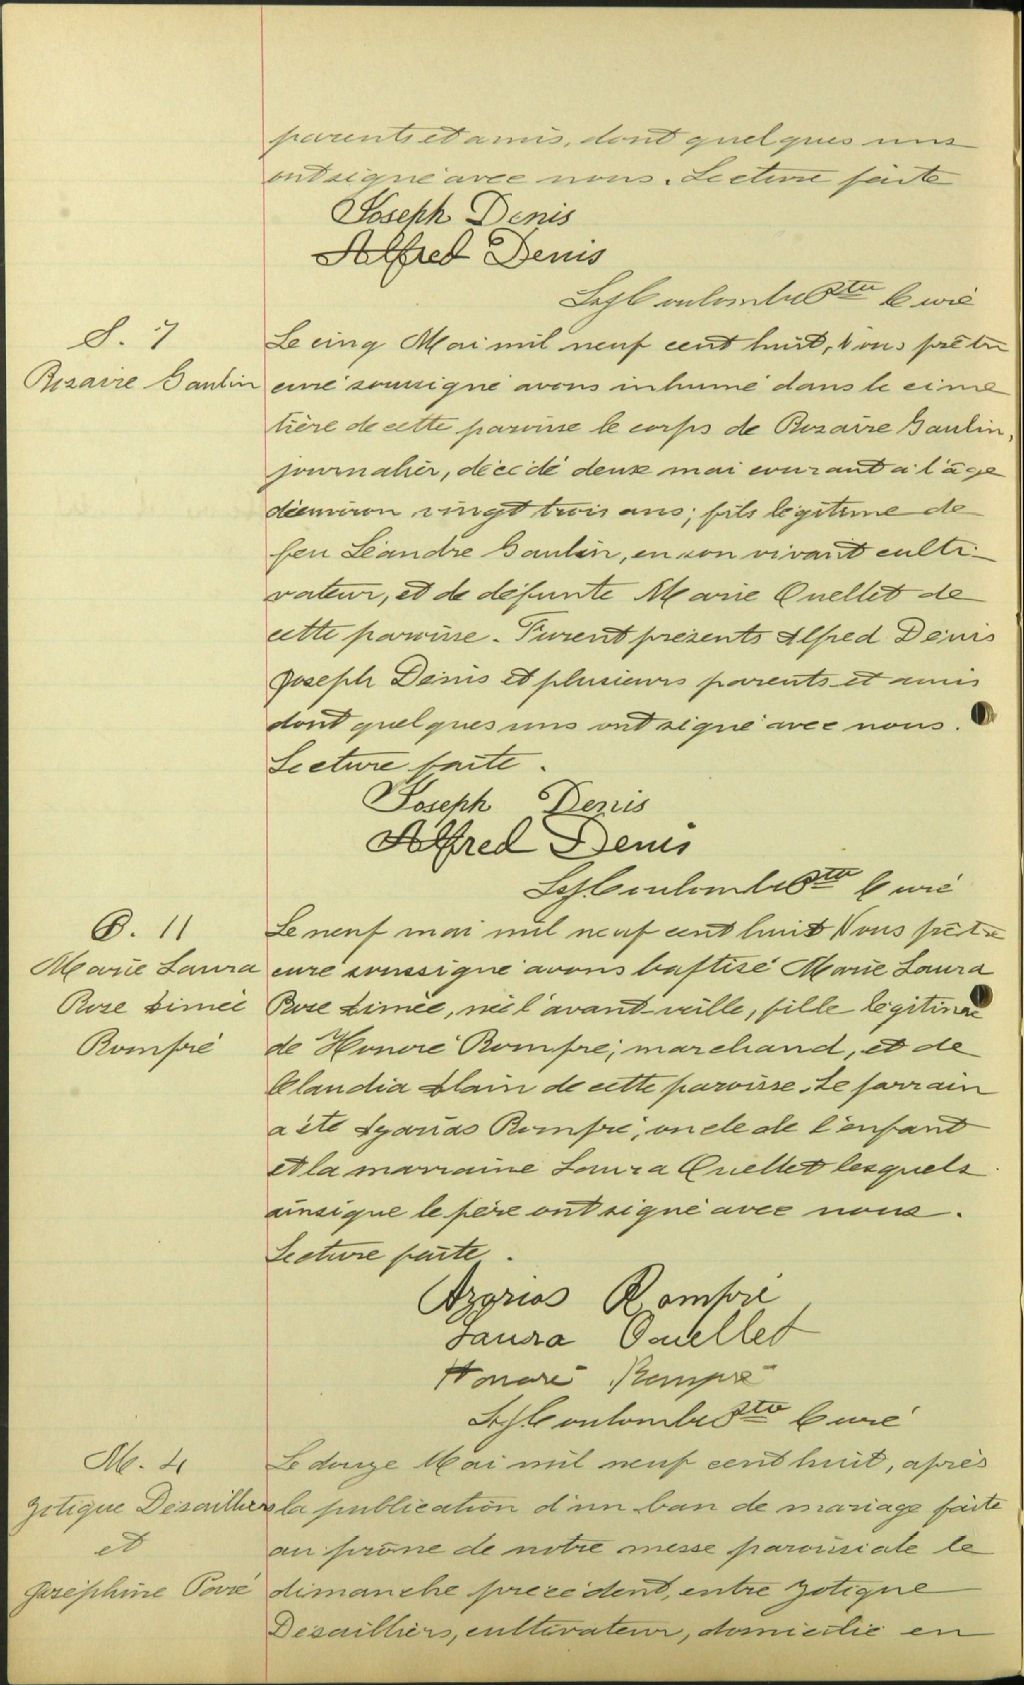 parents et amis, dont quelques uns
ont signé avec nous. Lecture faite
Joseph Denis
Alfred Denis
Coulombe Ptre Curé
S. 7
Rosaire Gaulin
Le cinq Mai mil neuf cent huit, Nous prêtre
curé soussigné avons inhumé dans le cime
tière de cette paroisse le corps de Rosaire Gaulin,
journalier, décédé deux mai courant à l'âge
d'environ vingt trois ans; fils légitime de
feu Léandre Gaulin, en son vivant culti-
vateur, et de défunte Marie Ouellet de
cette paroisse. Furent présents Alfred Denis
Joseph Denis et plusieurs parents et amis
dont quelques uns ont signé avec nous.
Lecture faite.
Joseph Denis
Alfred Denis
Coulombe Ptre Curé
B. 11
Marie Laura
Rose Aimée
Rompré
Le neuf mai mil neuf cent huit Nous prêtre
curé soussigné avons baptisé Marie Laura
Rose Aimée, née l'avant-veille, fille légitime
de Honoré Rompré, marchand, et de
Claudia Alain de cette paroisse. Le parrain
a été Azarias Rompré, oncle de l'enfant
et la marraine Laura Ouellet lesquels
ainsi que le père ont signé avec nous.
Lecture faite.
Azarias Rompré
Laura Ouellet
Honoré Rompré
Coulombe Ptre Curé
M. 4
Zotique Desailliers
et
Joséphine Paré
Le douze Mai mil neuf cent huit, après
la publication d'un ban de mariage faite
au prône de notre messe paroissiale le
dimanche précédent, entre Zotique
Desailliers, cultivateur, domicilié en